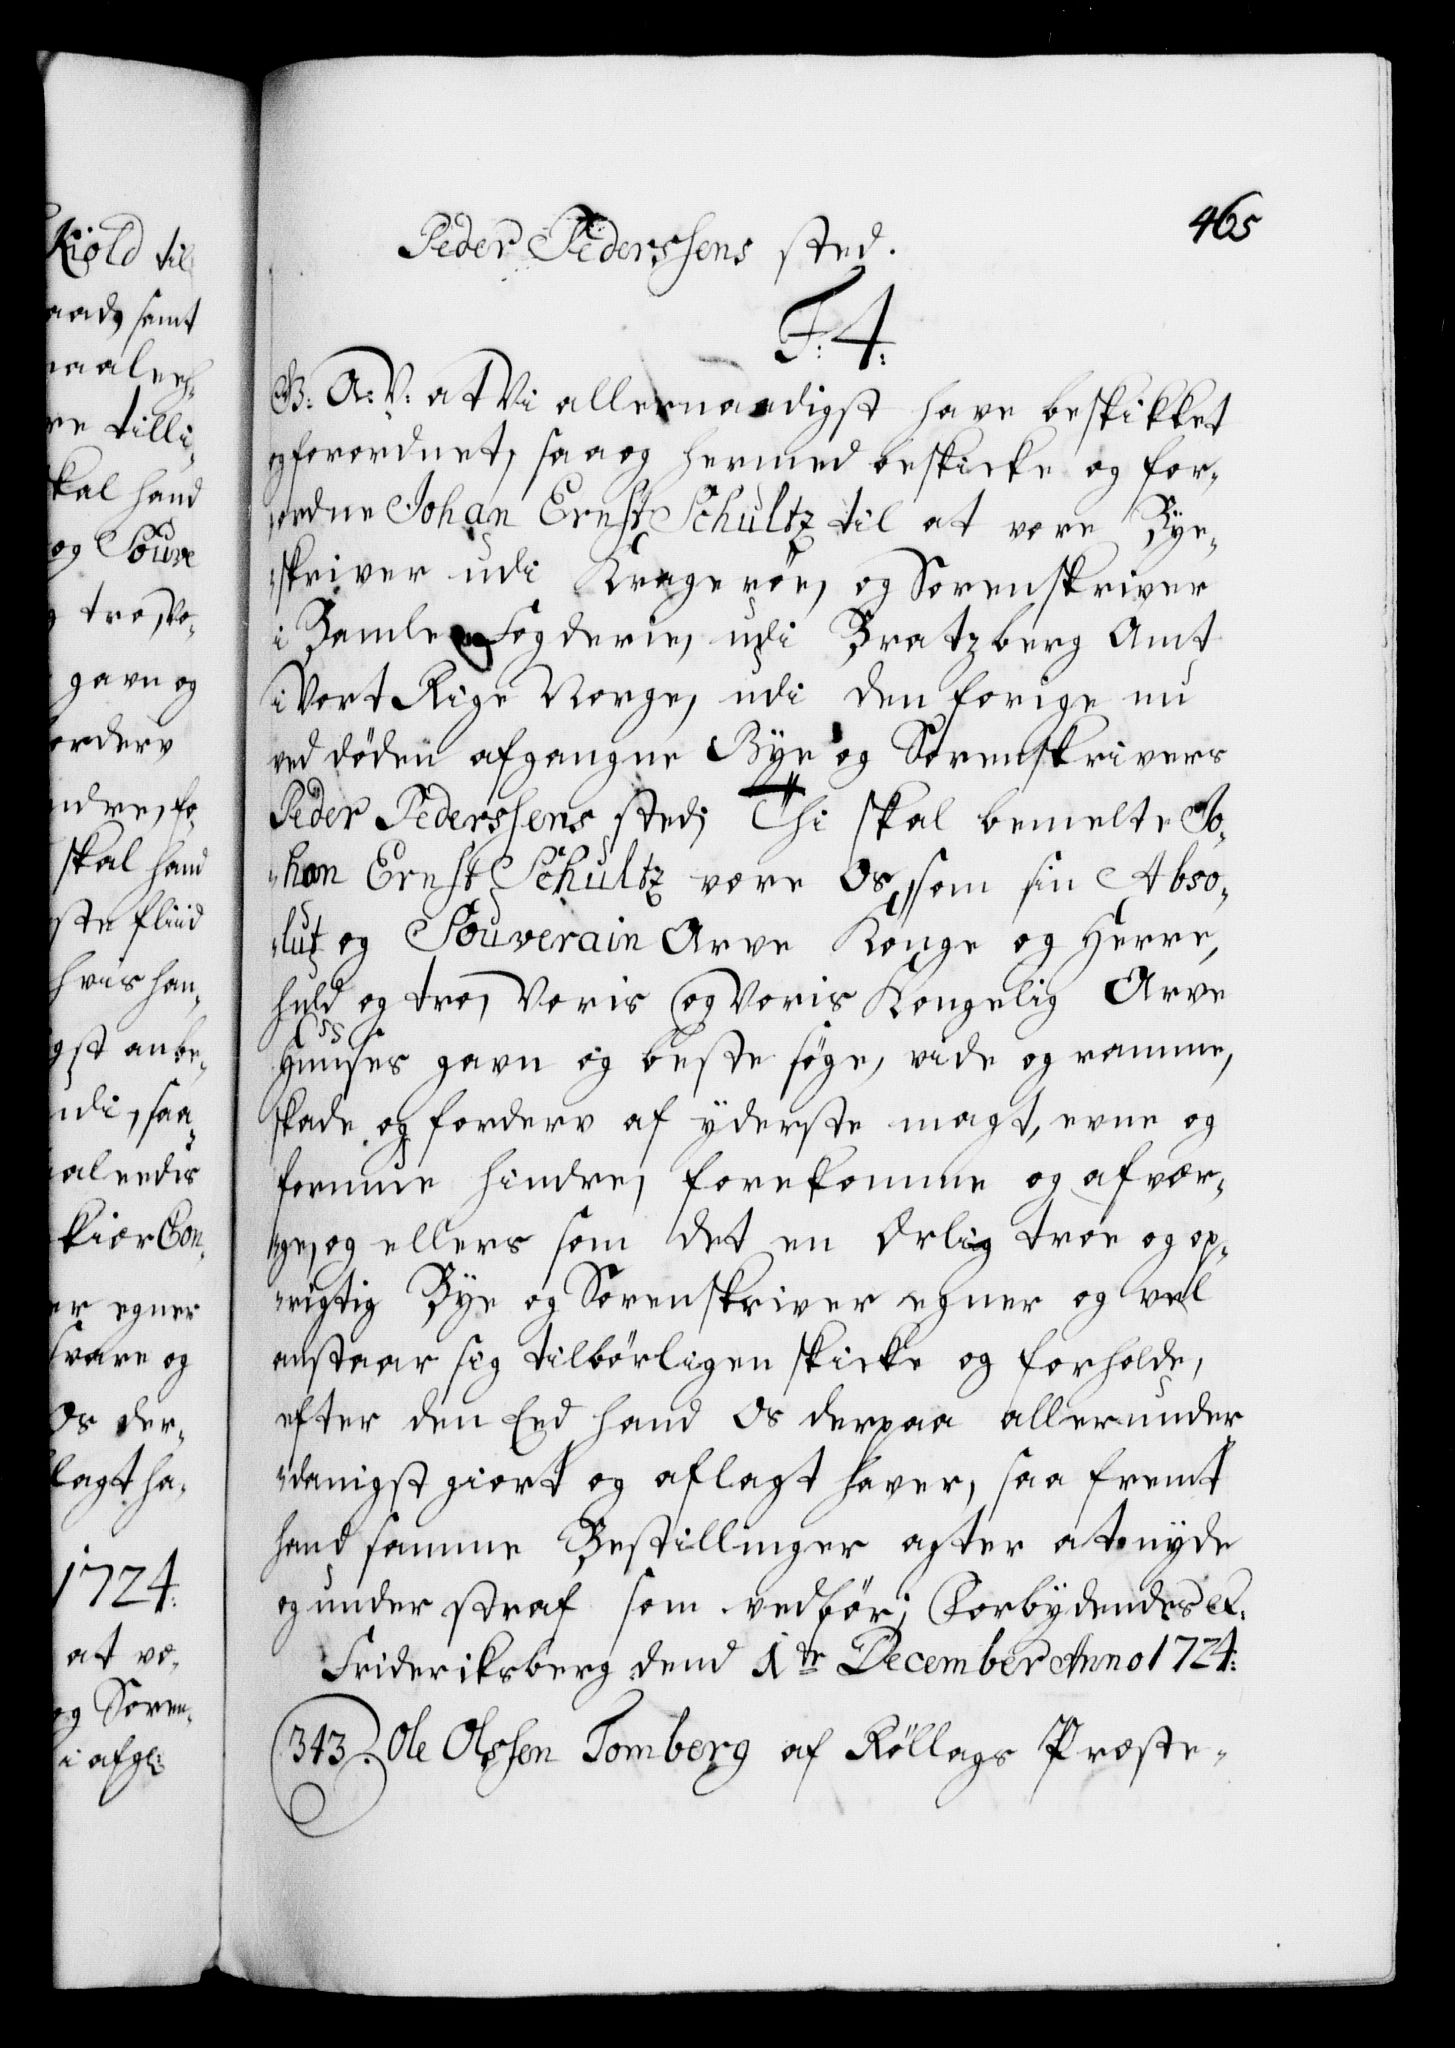 kiold til
aad, samt
re tilli¸
skal hand
og Souve
tro, Vo¸
gavn og
orderv
ndre, fo¸
skal hand
ste fliid
hvis han¸
gst anbe¸
udi, saa¸
aleedis
kiær Con¸
er egner
svare og
Os der¸
lagt ha¸
1724:
at væ¸
og Soren¸
i afg:
465
Peder Pederssens sted.
F: 4:
G: A: V: at Vi allernaadigst have beskikket
og forordnet, saa og hermed beskicke og for¸
¸ordne Johan Ernst Schultz til at være Bye¸
¸skriver udi Kragerøe, og Sorenskriver
i Bamle Fogderie, udi Bratzberg Amt
i Vort Rige Norge, udi den forige nu
ved døden afgangne Bye og Sorenskrivers
Peder Pederssens sted; Thi skal bemelte Jo¸
¸han Ernst Schultz være Os, som sin Abso¸
¸lut og Souverain Arve Konge og Herre,
huld og tro, Voris og Voris Kongelig Arve
Huuses gavn og beste søge, vide og ramme,
skade og forderv af yderste magt, evne og
formue hindre, forekomme og afvær¸
¸ge, og ellers som det en Ærlig troe og op¸
¸rigtig Bye og Sorenskriver egner og vel
anstaar sig tilbørligen skicke og forholde,
efter den Eed hand Os derpaa allerunder
¸danigst giort og aflagt haver, saa fremt
hand samme Bestillinger agter at nyde
og under straf som vedbør; Forbydendes &.
Frideriksberg dend 1te December Anno 1724:
343. Ole Olssen Tomberg af Røllags Præste¸